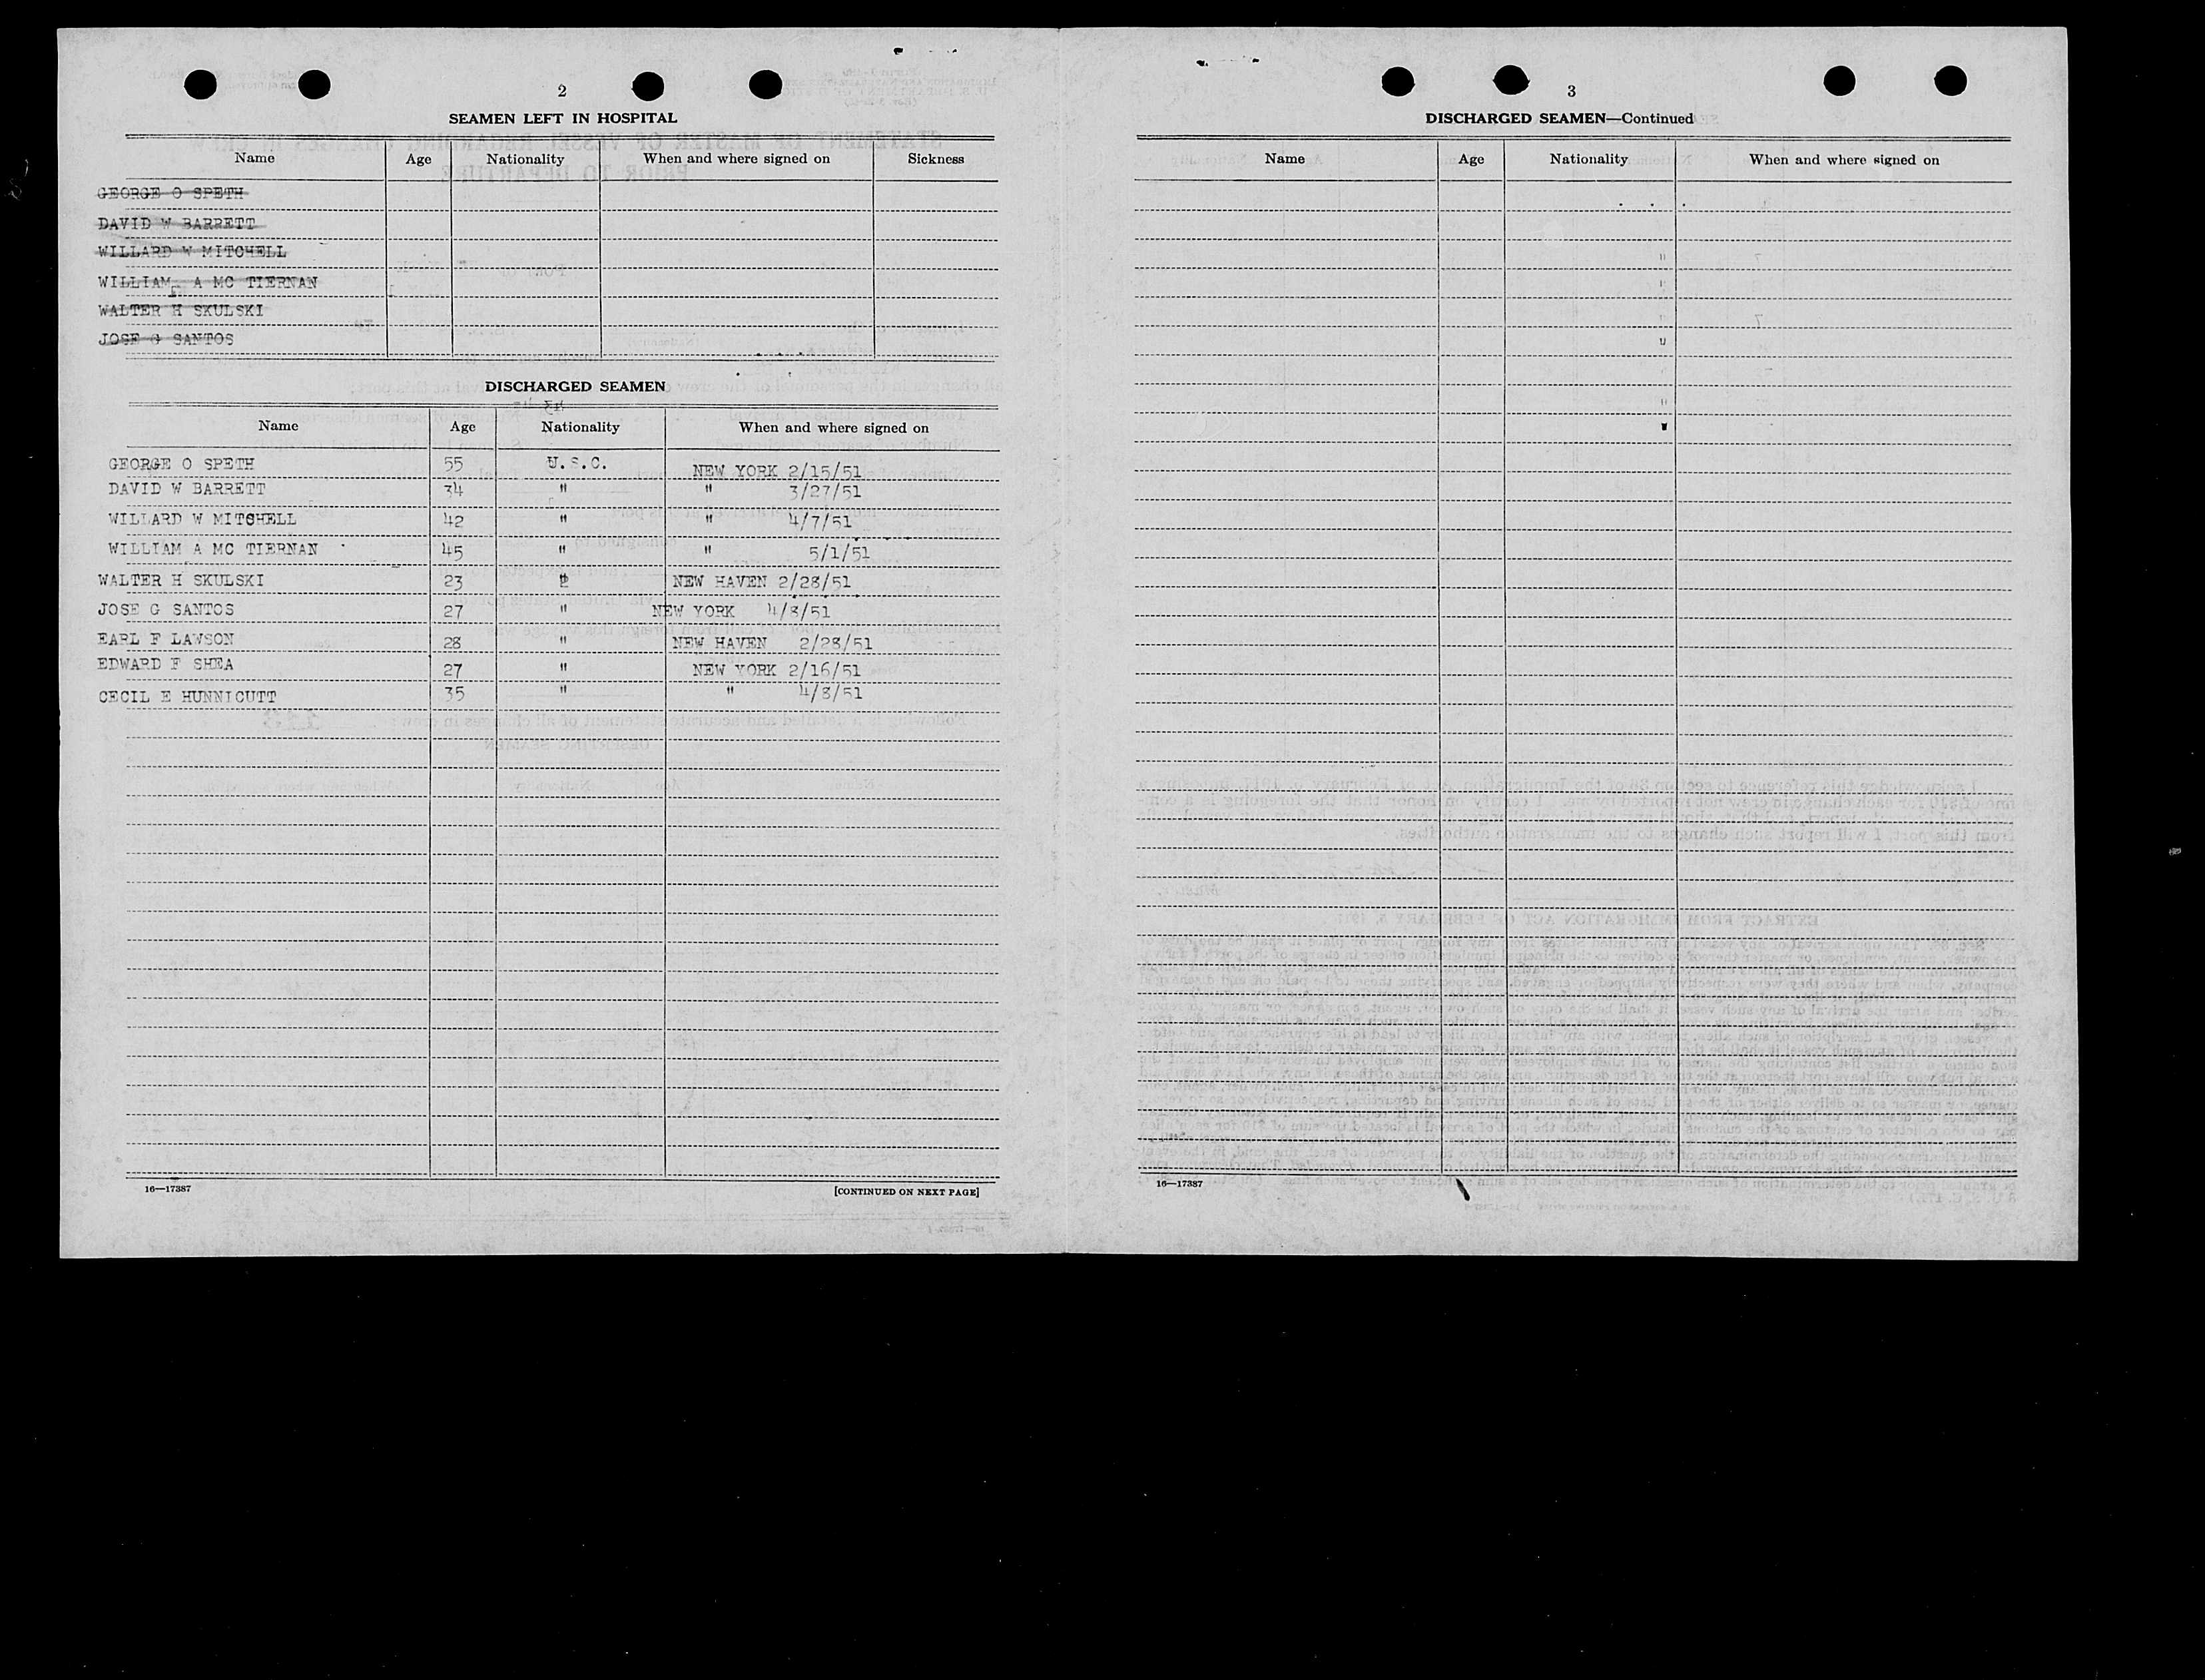 2
SEAMEN LEFT IN HOSPITAL
Name Age Nationality When and where signed on Sickness
GEORGE O SPETH
DAVID W BARRETT
WILLARD W MITCHELL
WILLIAM A MC TIERNAN
WALTER H SKULSKI
JOSE G SANTOS
DISCHARGED SEAMEN
Name Age Nationality When and where signed on
GEORGE O SPETH 55 U.S.C. NEW YORK 2/15/51
DAVID W BARRETT 34 " " 3/27/51
WILLARD W MITCHELL 42 " " 4/7/51
WILLIAM A MC TIERNAN 45 " " 5/1/51
WALTER H SKULSKI 23 " NEW HAVEN 2/28/51
JOSE G SANTOS 27 " NEW YORK 4/8/51
EARL F LAWSON 28 " NEW HAVEN 2/28/51
EDWARD F SHEA 27 " NEW YORK 2/16/51
CECIL E HUNNICUTT 35 " " 4/8/51
16—17387 [CONTINUED ON NEXT PAGE]
3
DISCHARGED SEAMEN—Continued
Name Age Nationality When and where signed on
16—17387